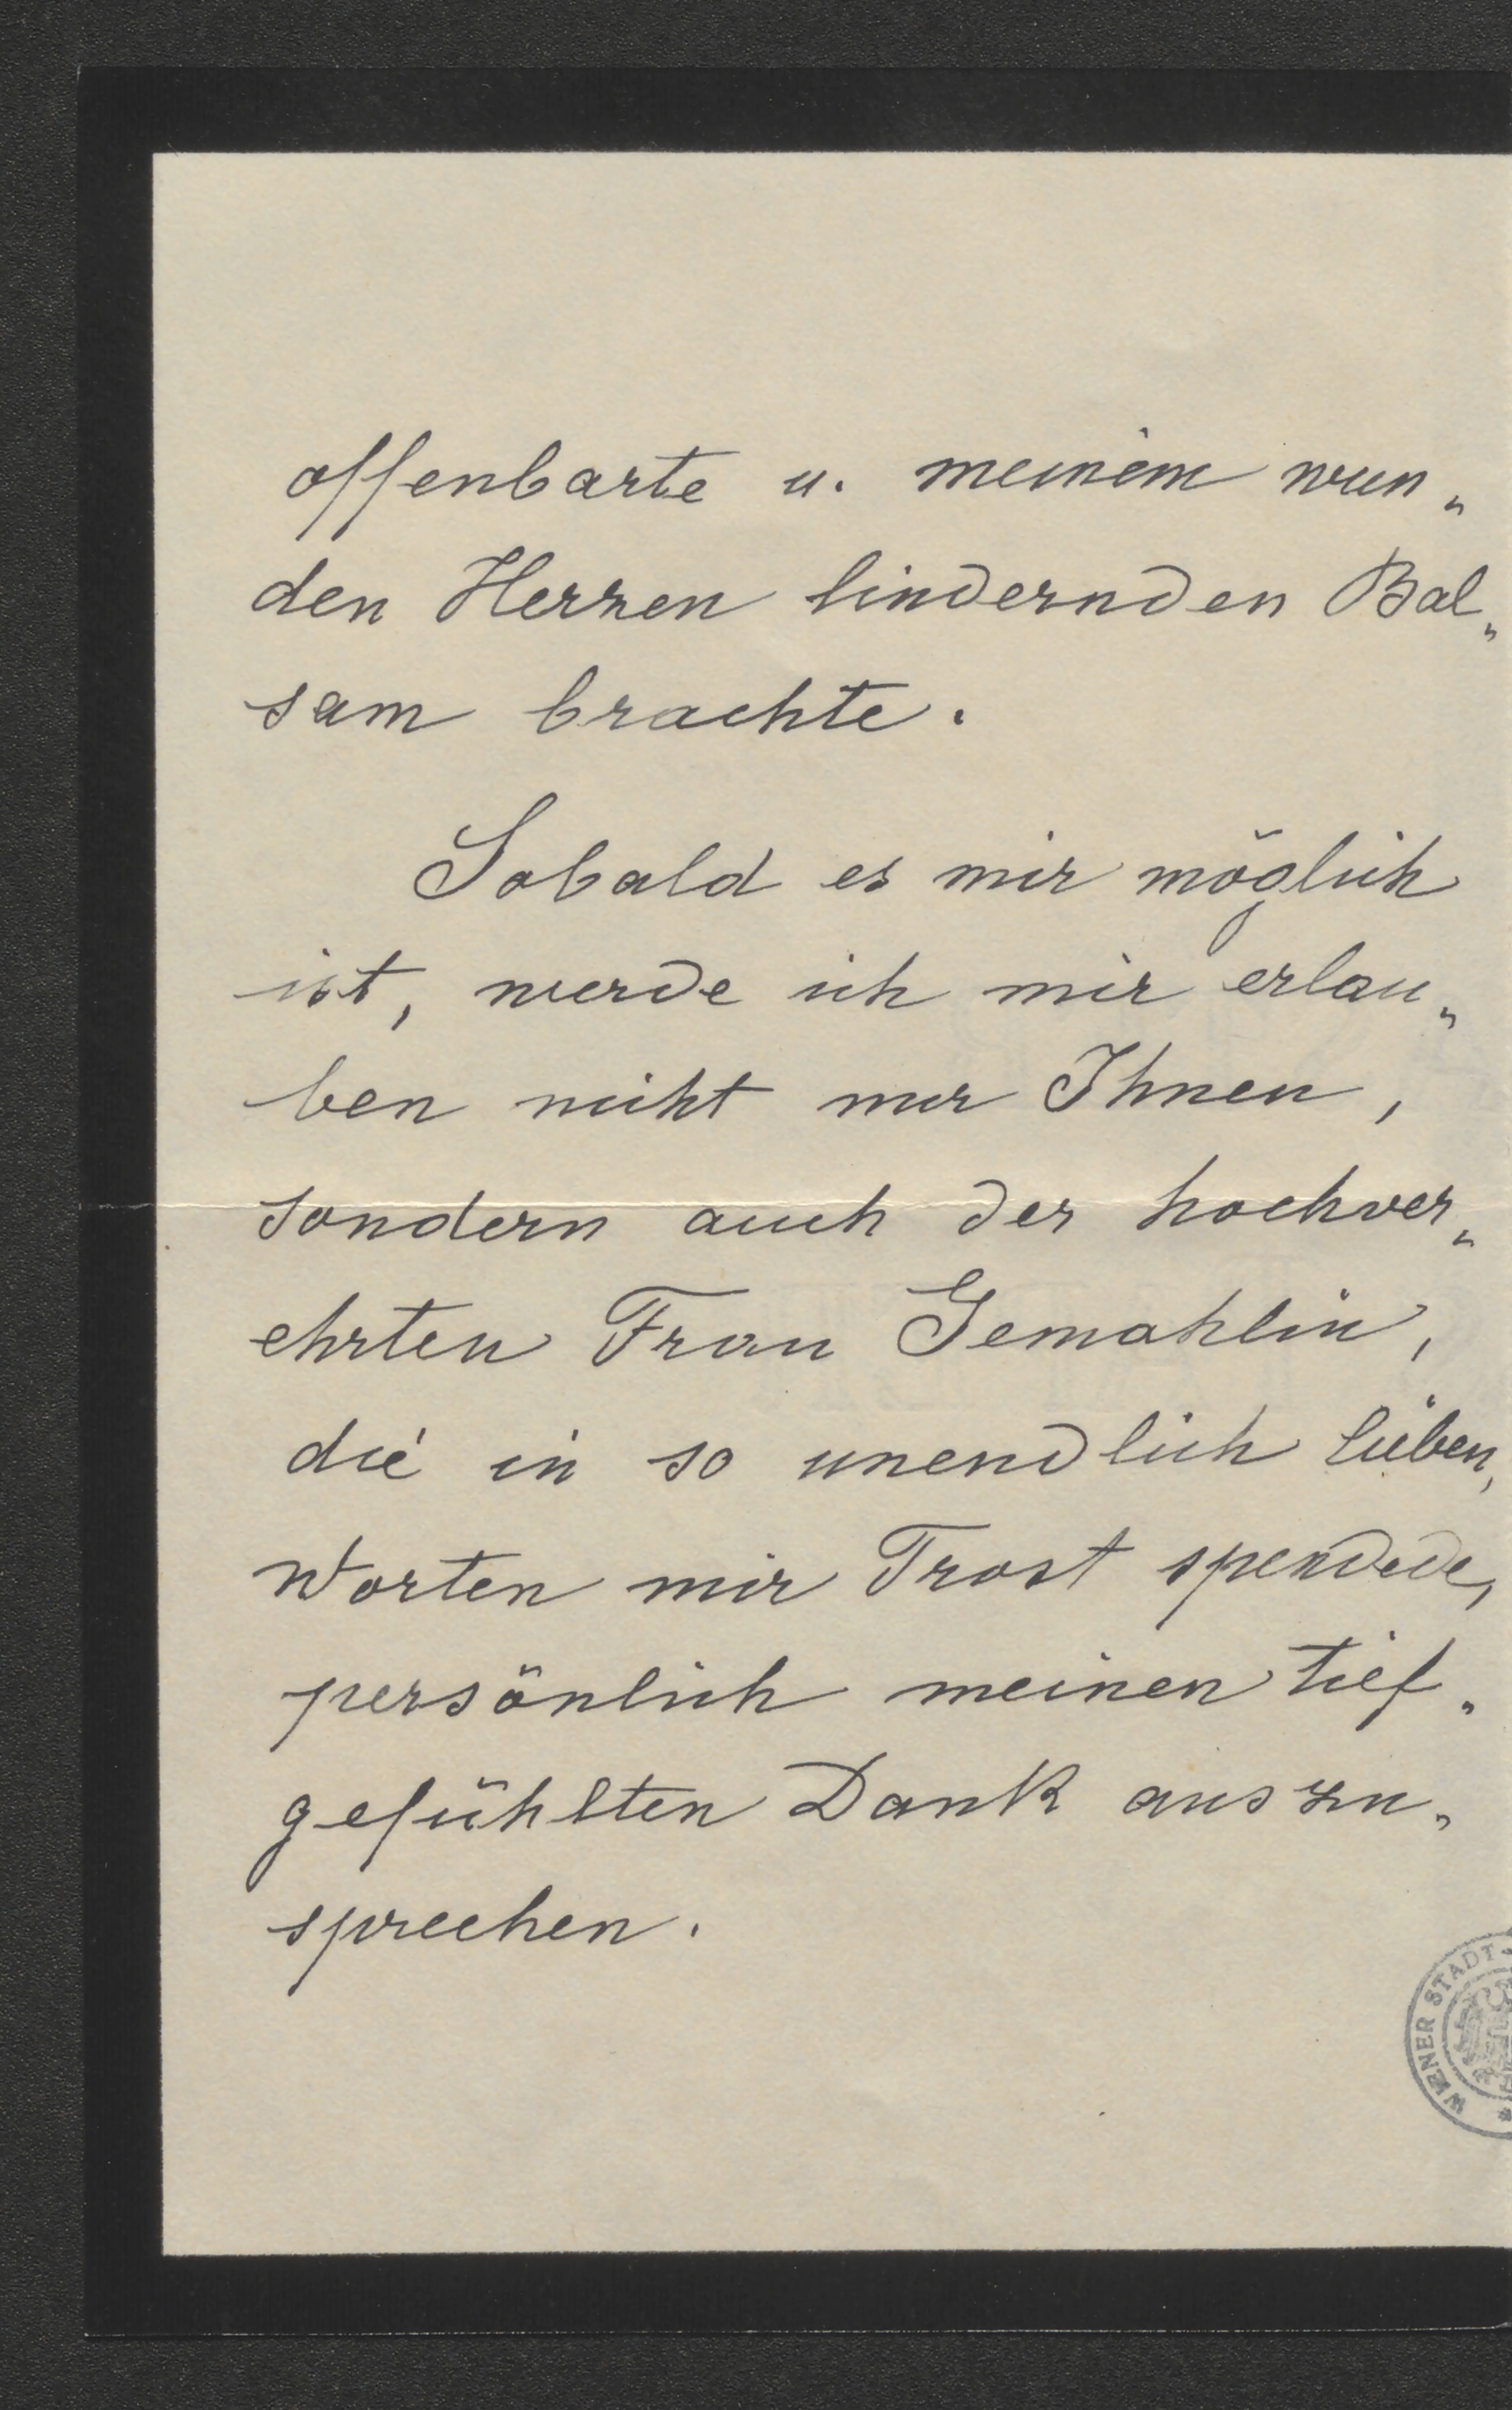 offenbarte u. meinem wun„
den Herzen lindernden Bal„
sam brachte.
Sobald es mir möglich
ist, werde ich mir erlau„
ben nicht nur Ihnen,
sondern auch der hochver„
ehrten Frau Gemahlin,
die in so unendlich lieben,
Worten mir Trost spendede,
persönlich meinen tief„
gefühlten Dank auszu„
sprechen.
WIENER STADT-